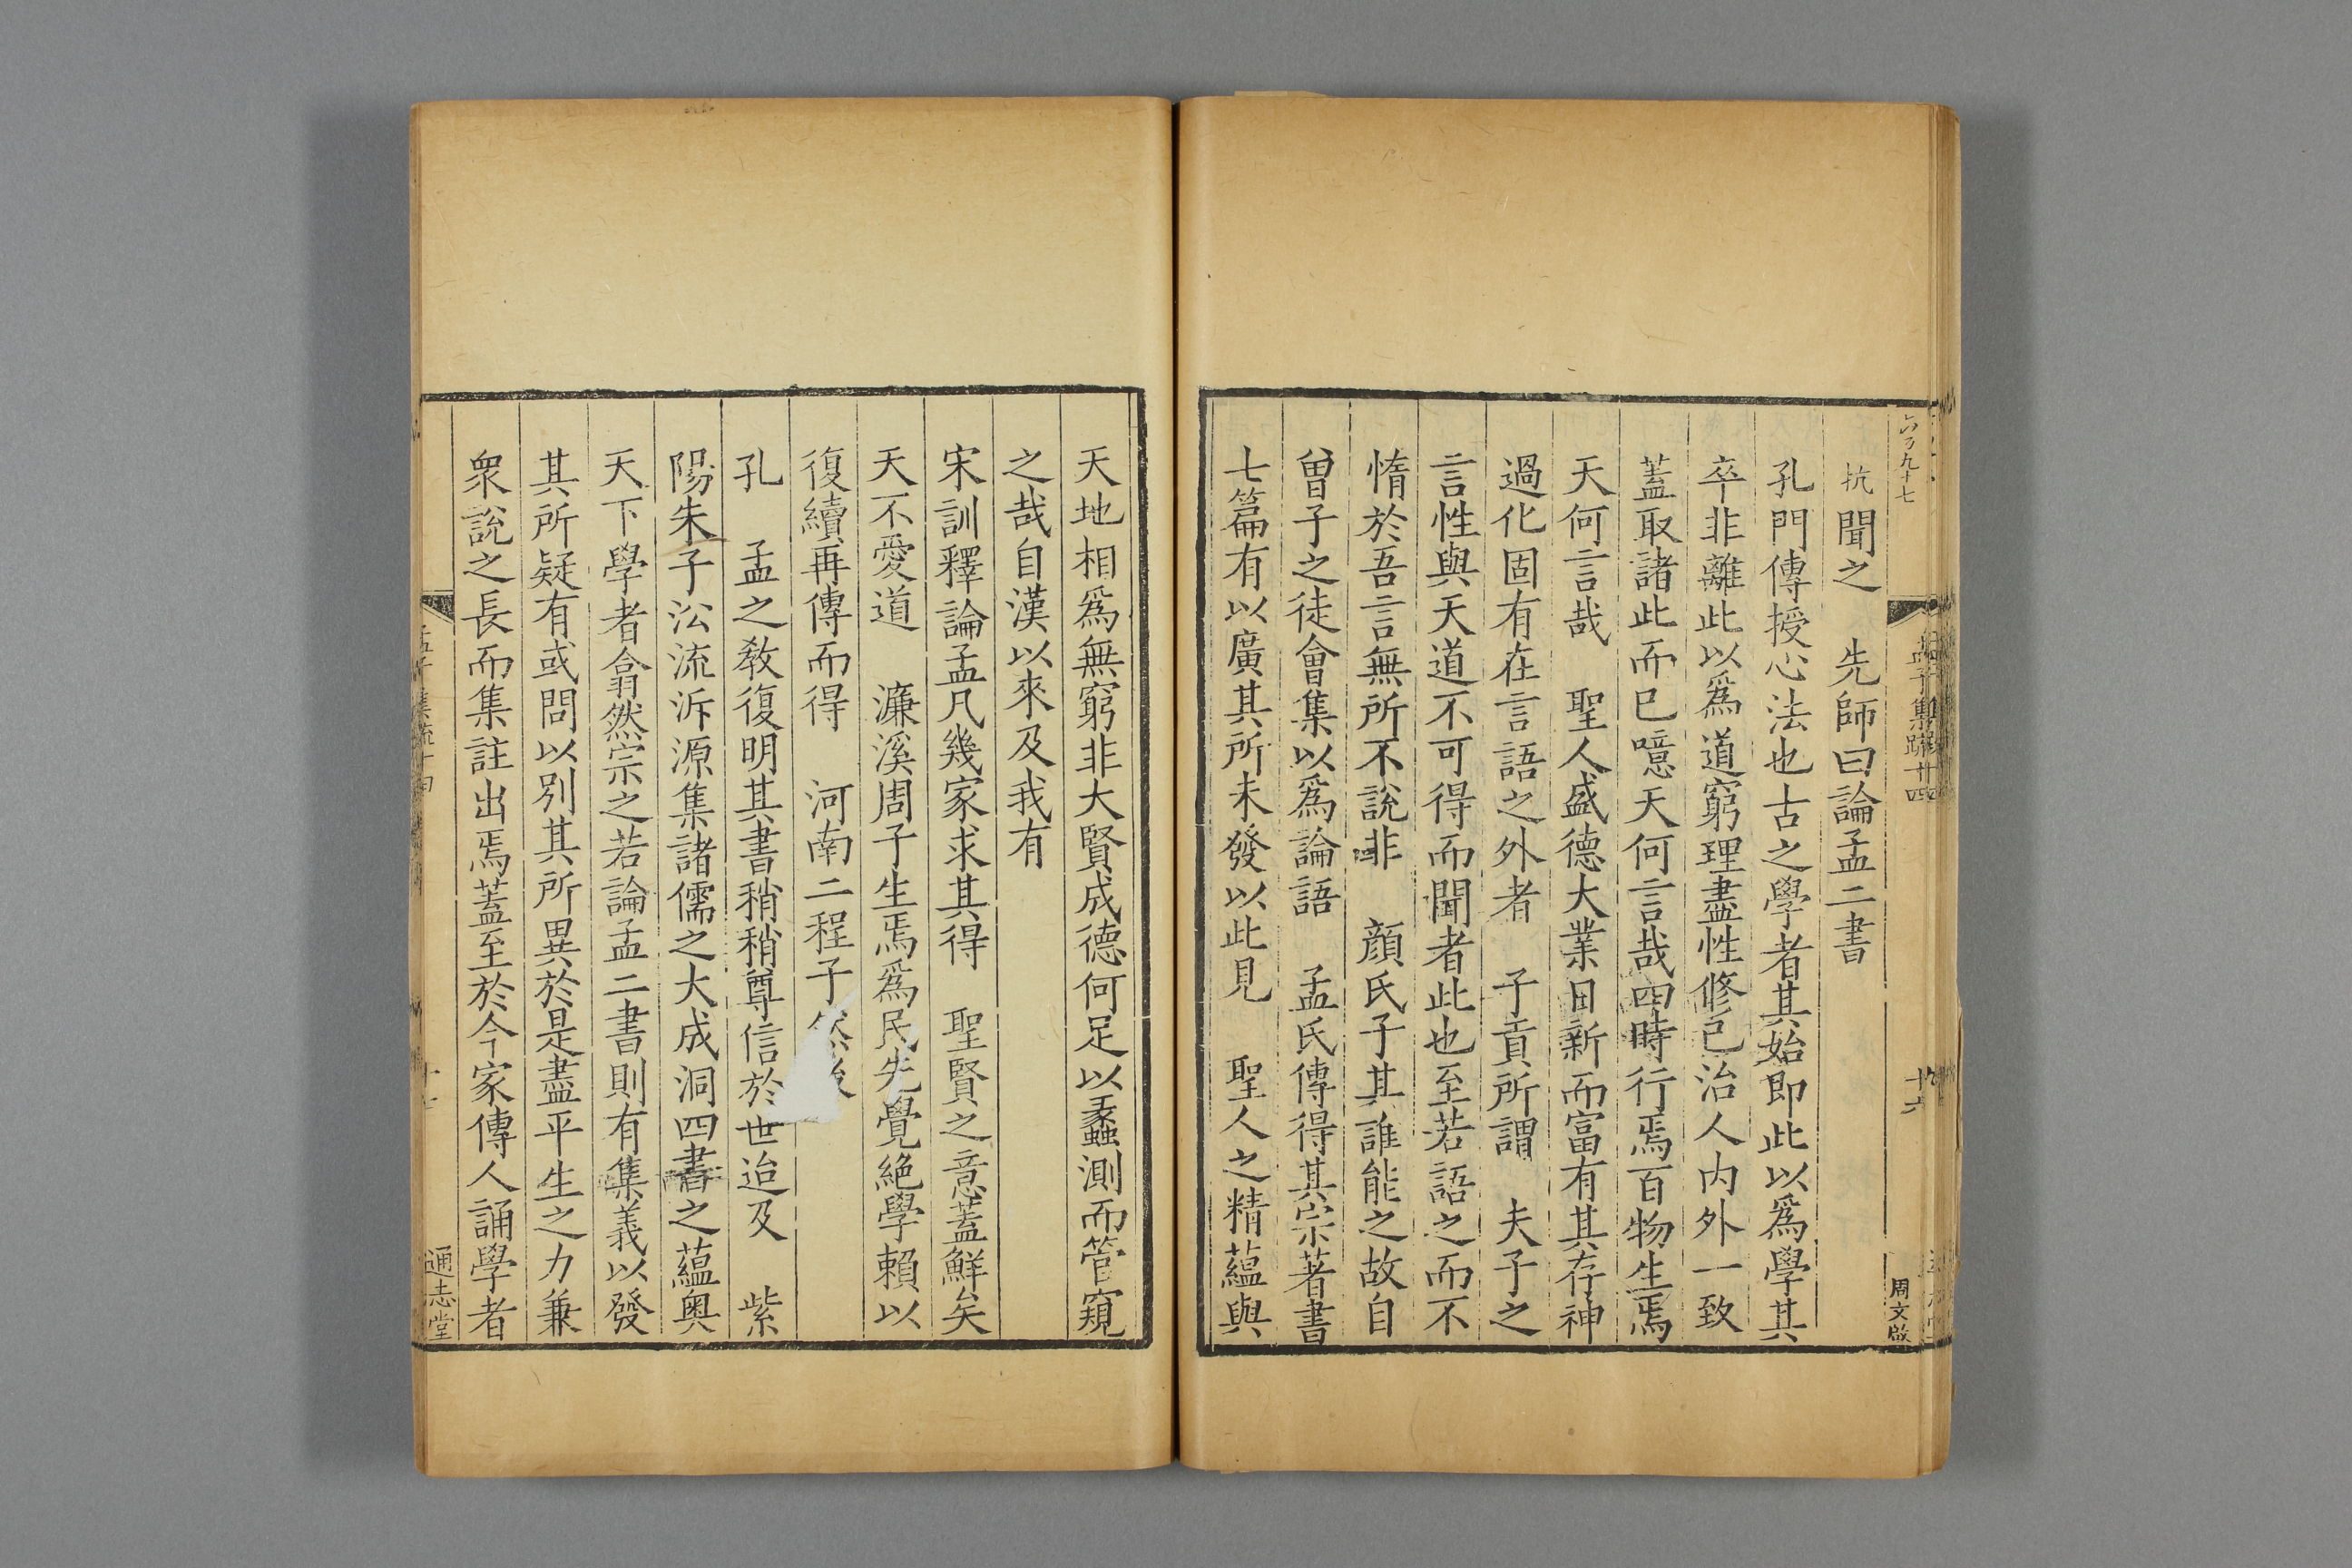 抗聞之 先師曰論孟二書
孔門傳授心法也古之學者其始即此以爲學其
卒非離此以爲道窮理盡性修己治人内外一致
蓋取諸此而已噫天何言哉四時行焉百物生焉
天何言哉 聖人盛德大業日新而富有其存神
過化固有在言語之外者 子貢所謂 夫子之
言性與天道不可得而聞者此也至若語之而不
惰於吾言無所不說非 顔氏子其誰能之故自
曾子之徒會集以爲論語 孟氏傳得其宗著書
七篇有以廣其所未發以此見 聖人之精蘊與
天地相爲無窮非大賢成德何足以蠡測而管窺
之哉自漢以來及我有
宋訓釋論孟凡幾家求其得 聖賢之意蓋鮮矣
天不愛道 濂溪周子生焉爲民先覺絶學賴以
復續再傳而得 河南二程子然後
孔 孟之教復明其書稍稍尊信於世迨及 紫
陽朱子沿流泝源集諸儒之大成洞四書之蘊奥
天下學者翕然宗之若論孟二書則有集義以發
其所疑有或問以别其所異於是盡平生之力兼
衆說之長而集註出焉蓋至於今家傳人誦學者
六百九十七
孟子集疏十四
十六
周文啟
通志堂